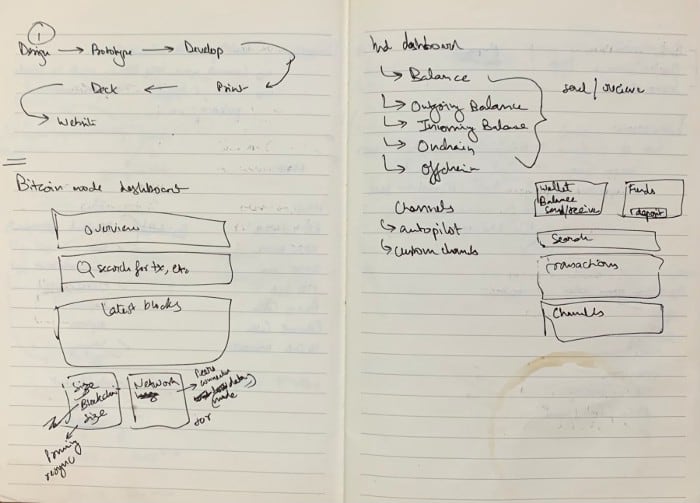 1
Design → Prototype → Develop
Deck ← Print
→ Website
Bitcoin node dashboard
overview
search for tx, etc
Latest blocks
Size
Blockchain
size
Network
Peers
tor
Pruning
resync
lnd dashboard
↳ Balance
↳ Outgoing Balance
↳ Incoming Balance
↳ Onchain
↳ Offchain
send/receive
Channels
↳ autopilot
↳ custom channels
Wallet
Balance
send/receive
Funds
deposit
Search
Transactions
Channels